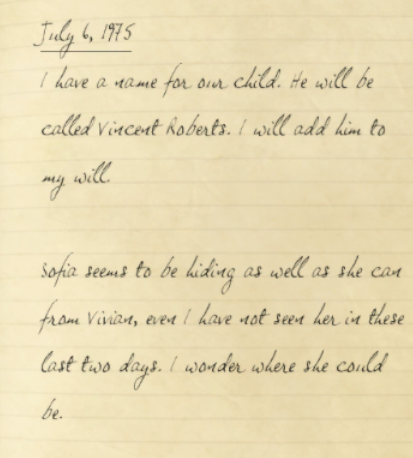 July 6, 1975
I have a name for our child. He will be
called Vincent Roberts. I will add him to
my will.
Sofia seems to be hiding as well as she can
from Vivian, even I have not seen her in these
last two days. I wonder where she could
be.